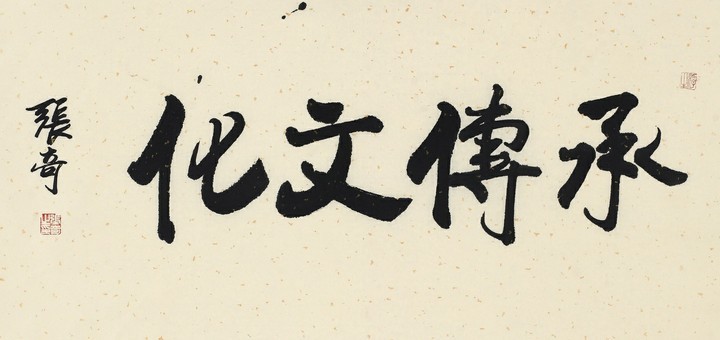 承傳文化
張奇